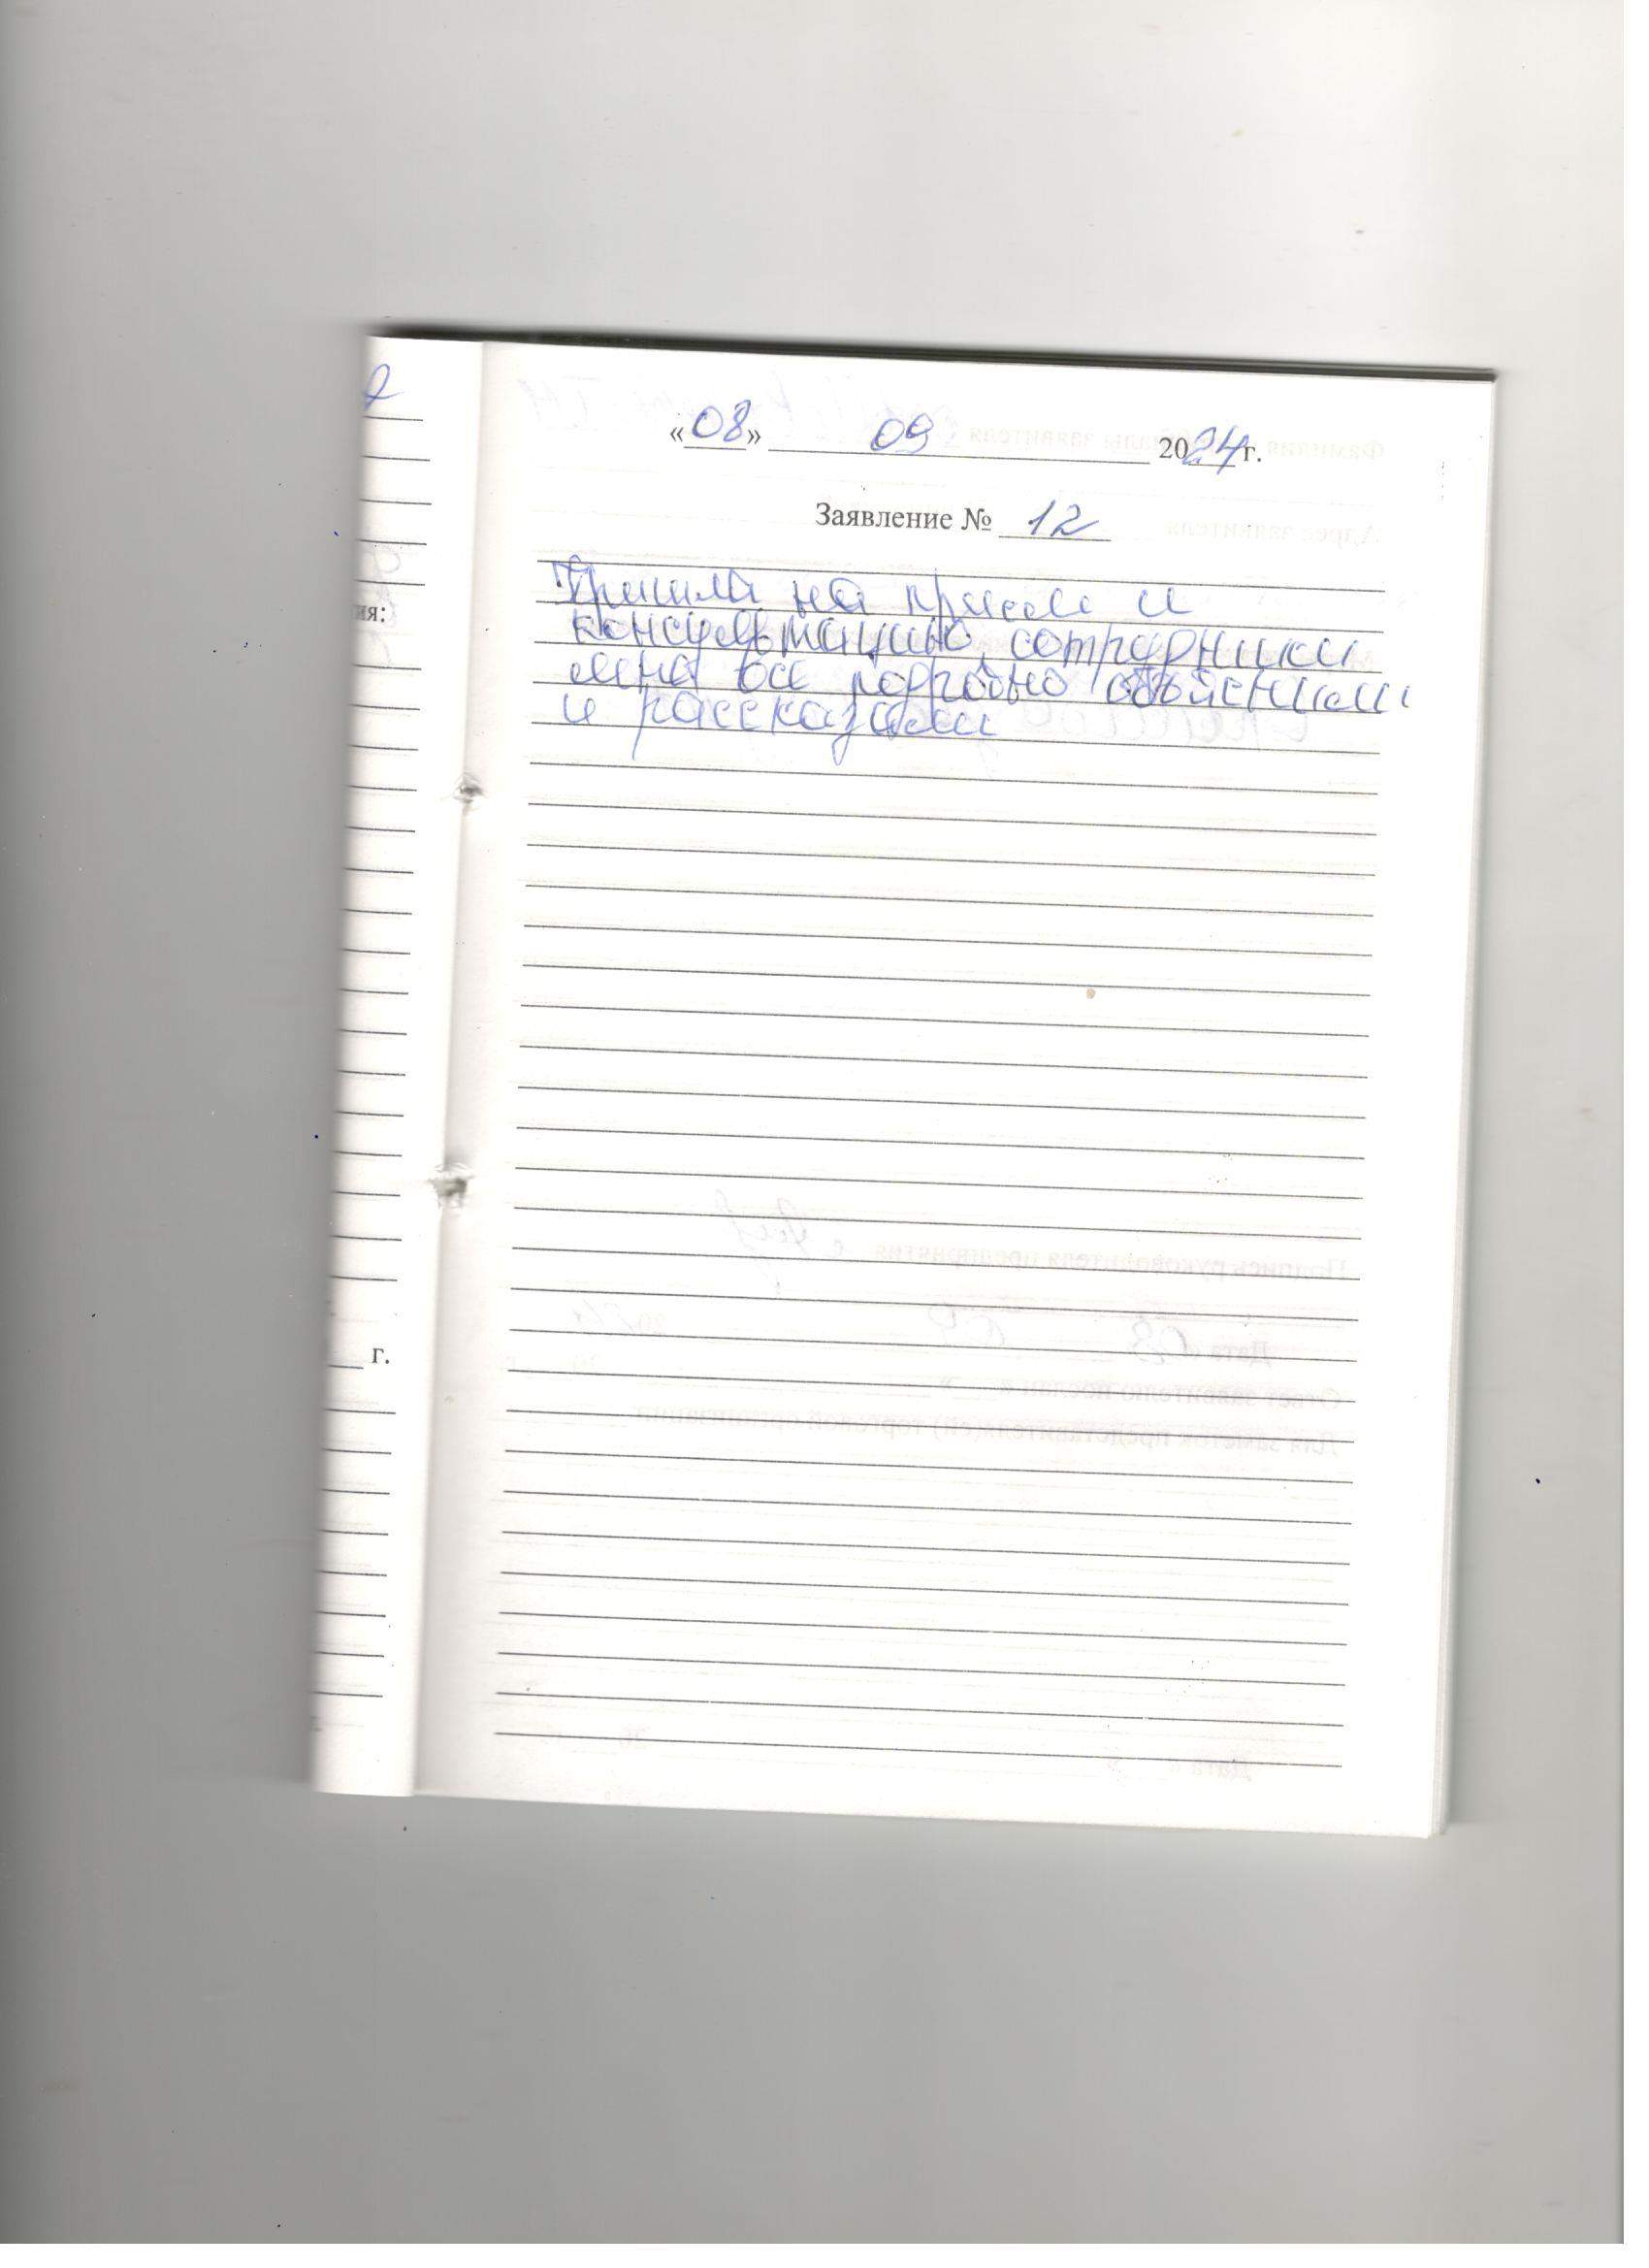 «08» 09 2024 г.
Заявление № 12
Пришла на прием и
консультацию, сотрудники
мне все подробно объяснили
и рассказали
ия:
г.